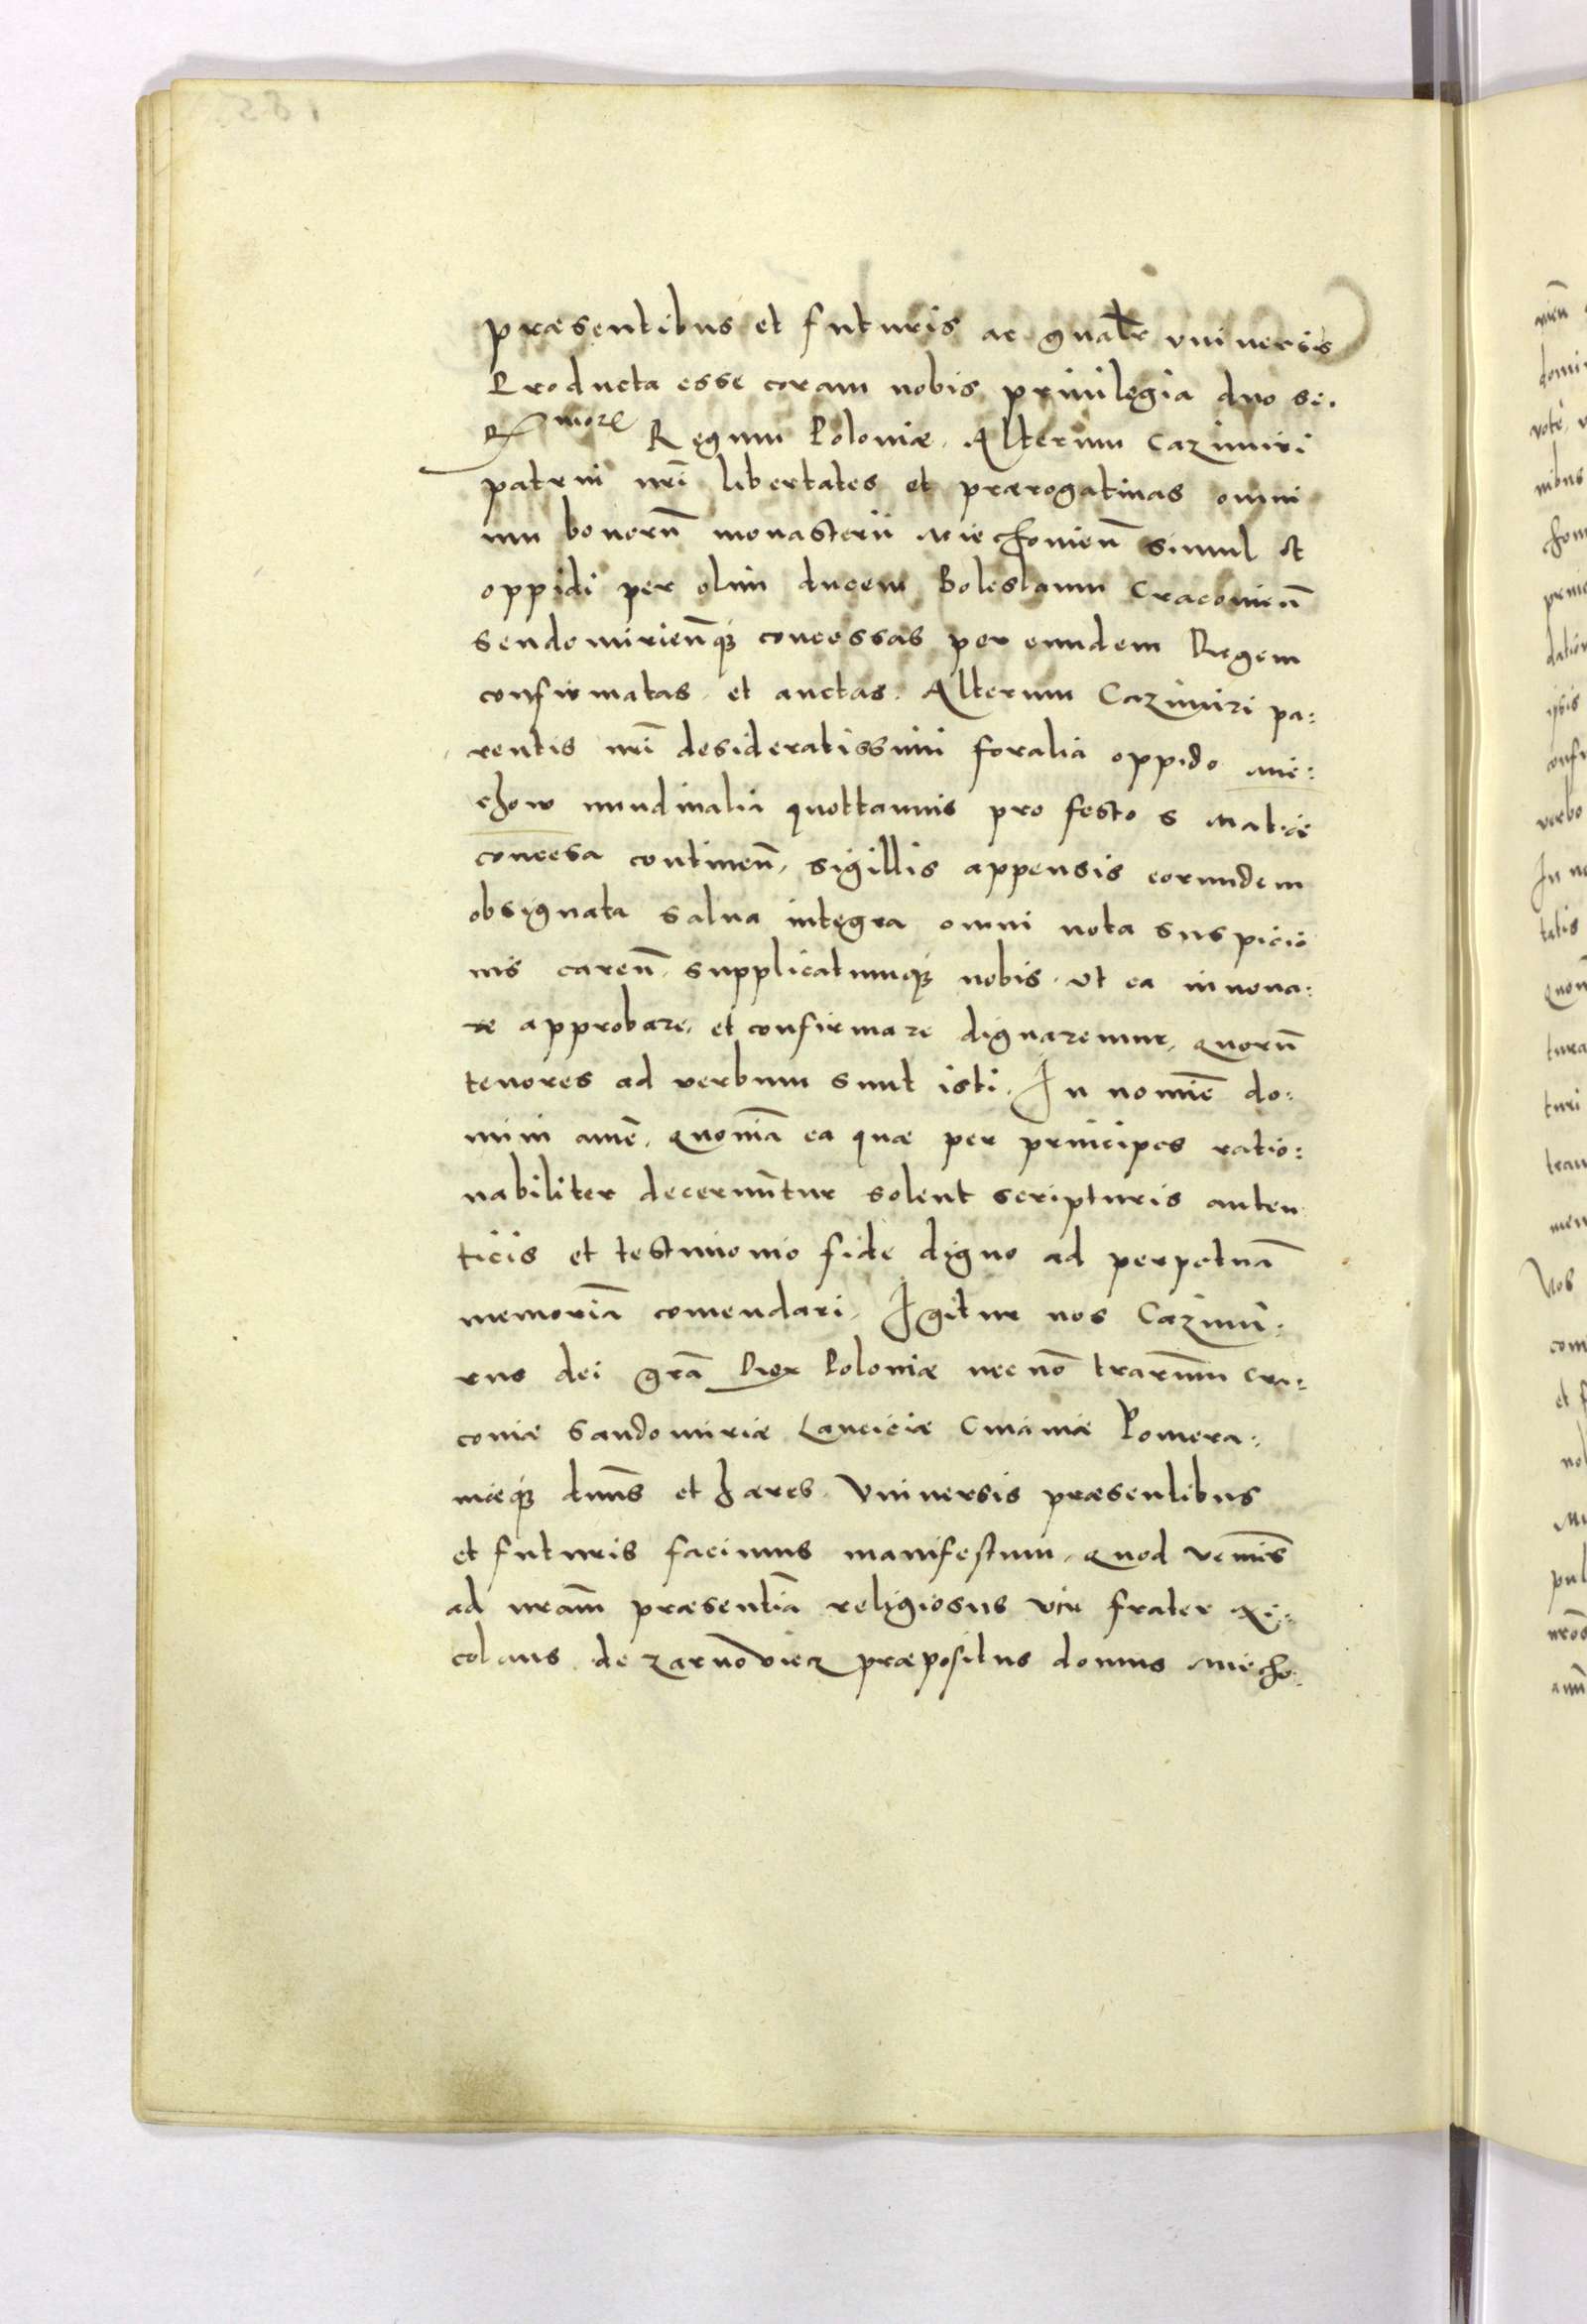 præsentibus et futuris ac gñaľr vniuersis
Producta esse coram nobis priuilegia duo se.
R moꝝ Regum Poloniæ. Alterum Cazimiri
patrui nrĩ libertates et prærogatiuas omni
um bonorũ monasterii Miechouieñ simul et
oppidi per olim ducem Boleslaum Cracouieñ
sendomirieñqꝫ concessas per eundem Regem
confirmatas et auctas. Alterum Cazimiri pa:
rentis nrĩ desideratissimi foralia oppido Mie:
chow nundinalia quottannis pro festo S Mathiæ
concesa contineñ, sigillis appensis eorundem
obsignata salua integra omni nota suspicio
nis careñ. supplicatumqꝫ nobis. vt ea innoua:
re approbare, et confirmare dignaremur, quorũ
tenores ad verbum sunt isti. In nomiẽ do:
mini amẽ. quoniã ea quæ per principes ratio:
nabiliter decernũtur solent scripturis auten
ticis et testimonio fide digno ad perpetuã
memoriã comendari. Igitur nos Cazimi:
rus dei grã Rex Poloniæ necnõ trarũm Cra:
coniæ Sandomiriæ Lanciciæ Cuiauiæ Pomera:
niæqꝫ dũns et hæres. Vniuersis præsentibus
et futuris facimus manifestum, quod veniẽs
ad nram̃ præsentiã religiosus vir frater Ni:
colaus de zarnõviecz præpositus domus Miecho: